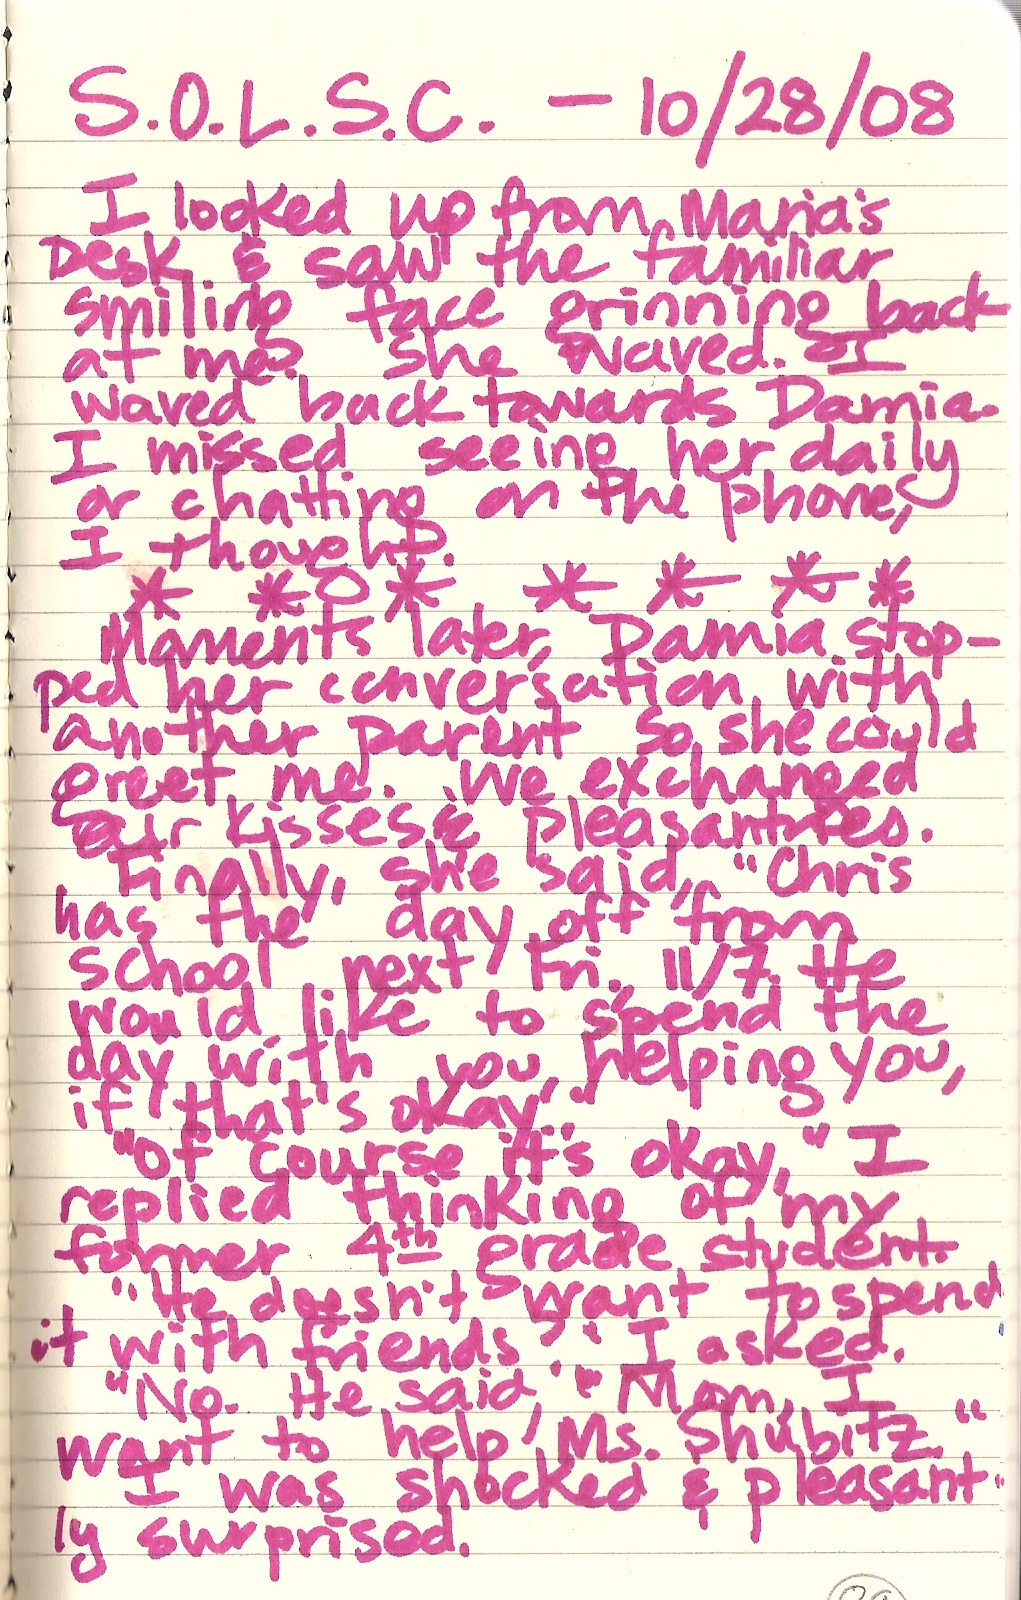 S.O.L.S.C. — 10/28/08
I looked up from Maria's
Desk & saw the familiar
smiling face grinning back
at me. She waved. I
waved back towards Damia.
I missed seeing her daily
or chatting on the phone,
I thought.
* * * * * * *
Moments later, Damia stop-
ped her conversation with
another parent so she could
greet me. We exchanged
our kisses & pleasantries.
Finally, she said, "Chris
has the day off from
school next Fri., 11/7. He
would like to spend the
day with you, helping you,
if that's okay."
"Of course it's okay," I
replied thinking of my
former 4th grade student.
"He doesn't want to spend
it with friends?" I asked.
"No. He said, "Mom, I
want to help Ms. Shubitz."
I was shocked & pleasant-
ly surprised.